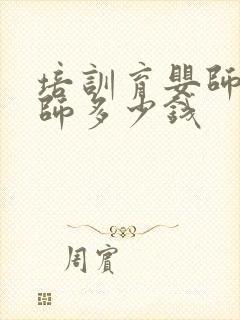 培訓育嬰師
師多少錢
周賓